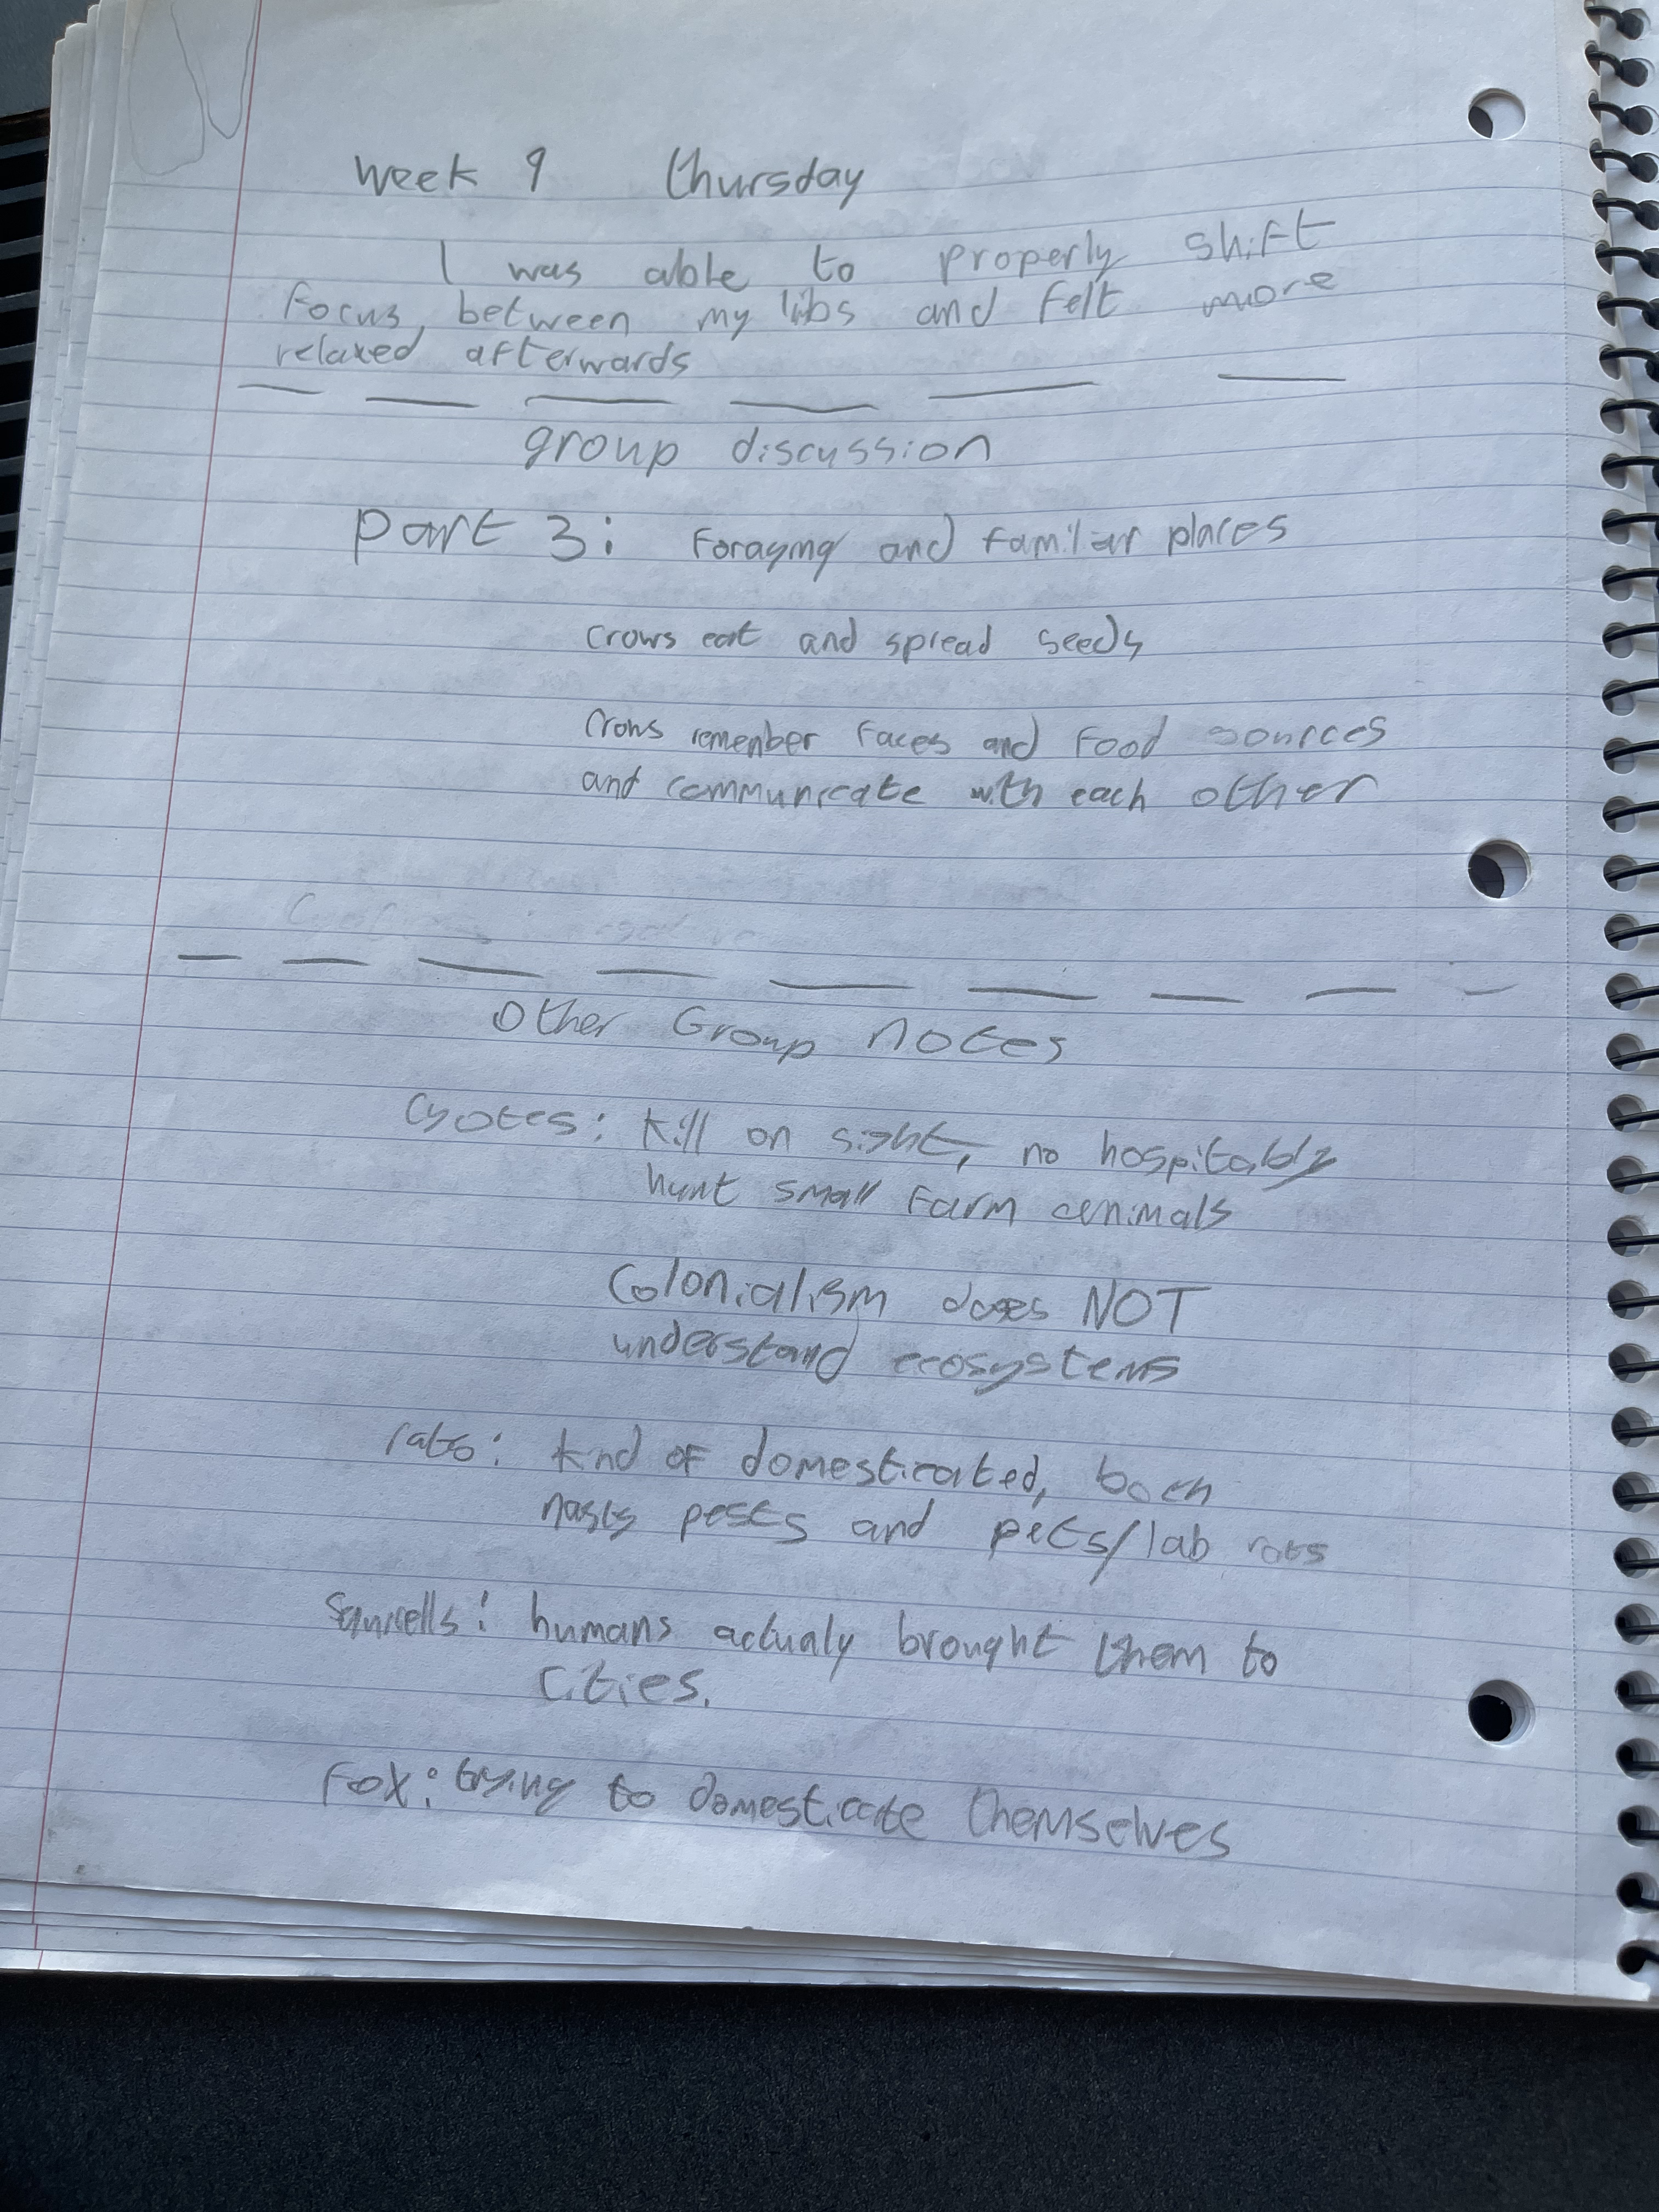 week 9 thursday
I was able to properly shift
focus, between my libs and felt more
relaxed afterwards
group discussion
part 3: Foraging and familiar places
crows eat and spread seeds
Crows remember faces and food sources
and communicate with each other
Other Group notes
Cyotes: kill on sight, no hospitably
hunt small farm animals
Colonialism does NOT
understand ecosystems
rats: kind of domesticated, both
nasty pests and pets/lab rats
Squirells: humans actualy brought them to
cities.
Fox: trying to domesticate themselves